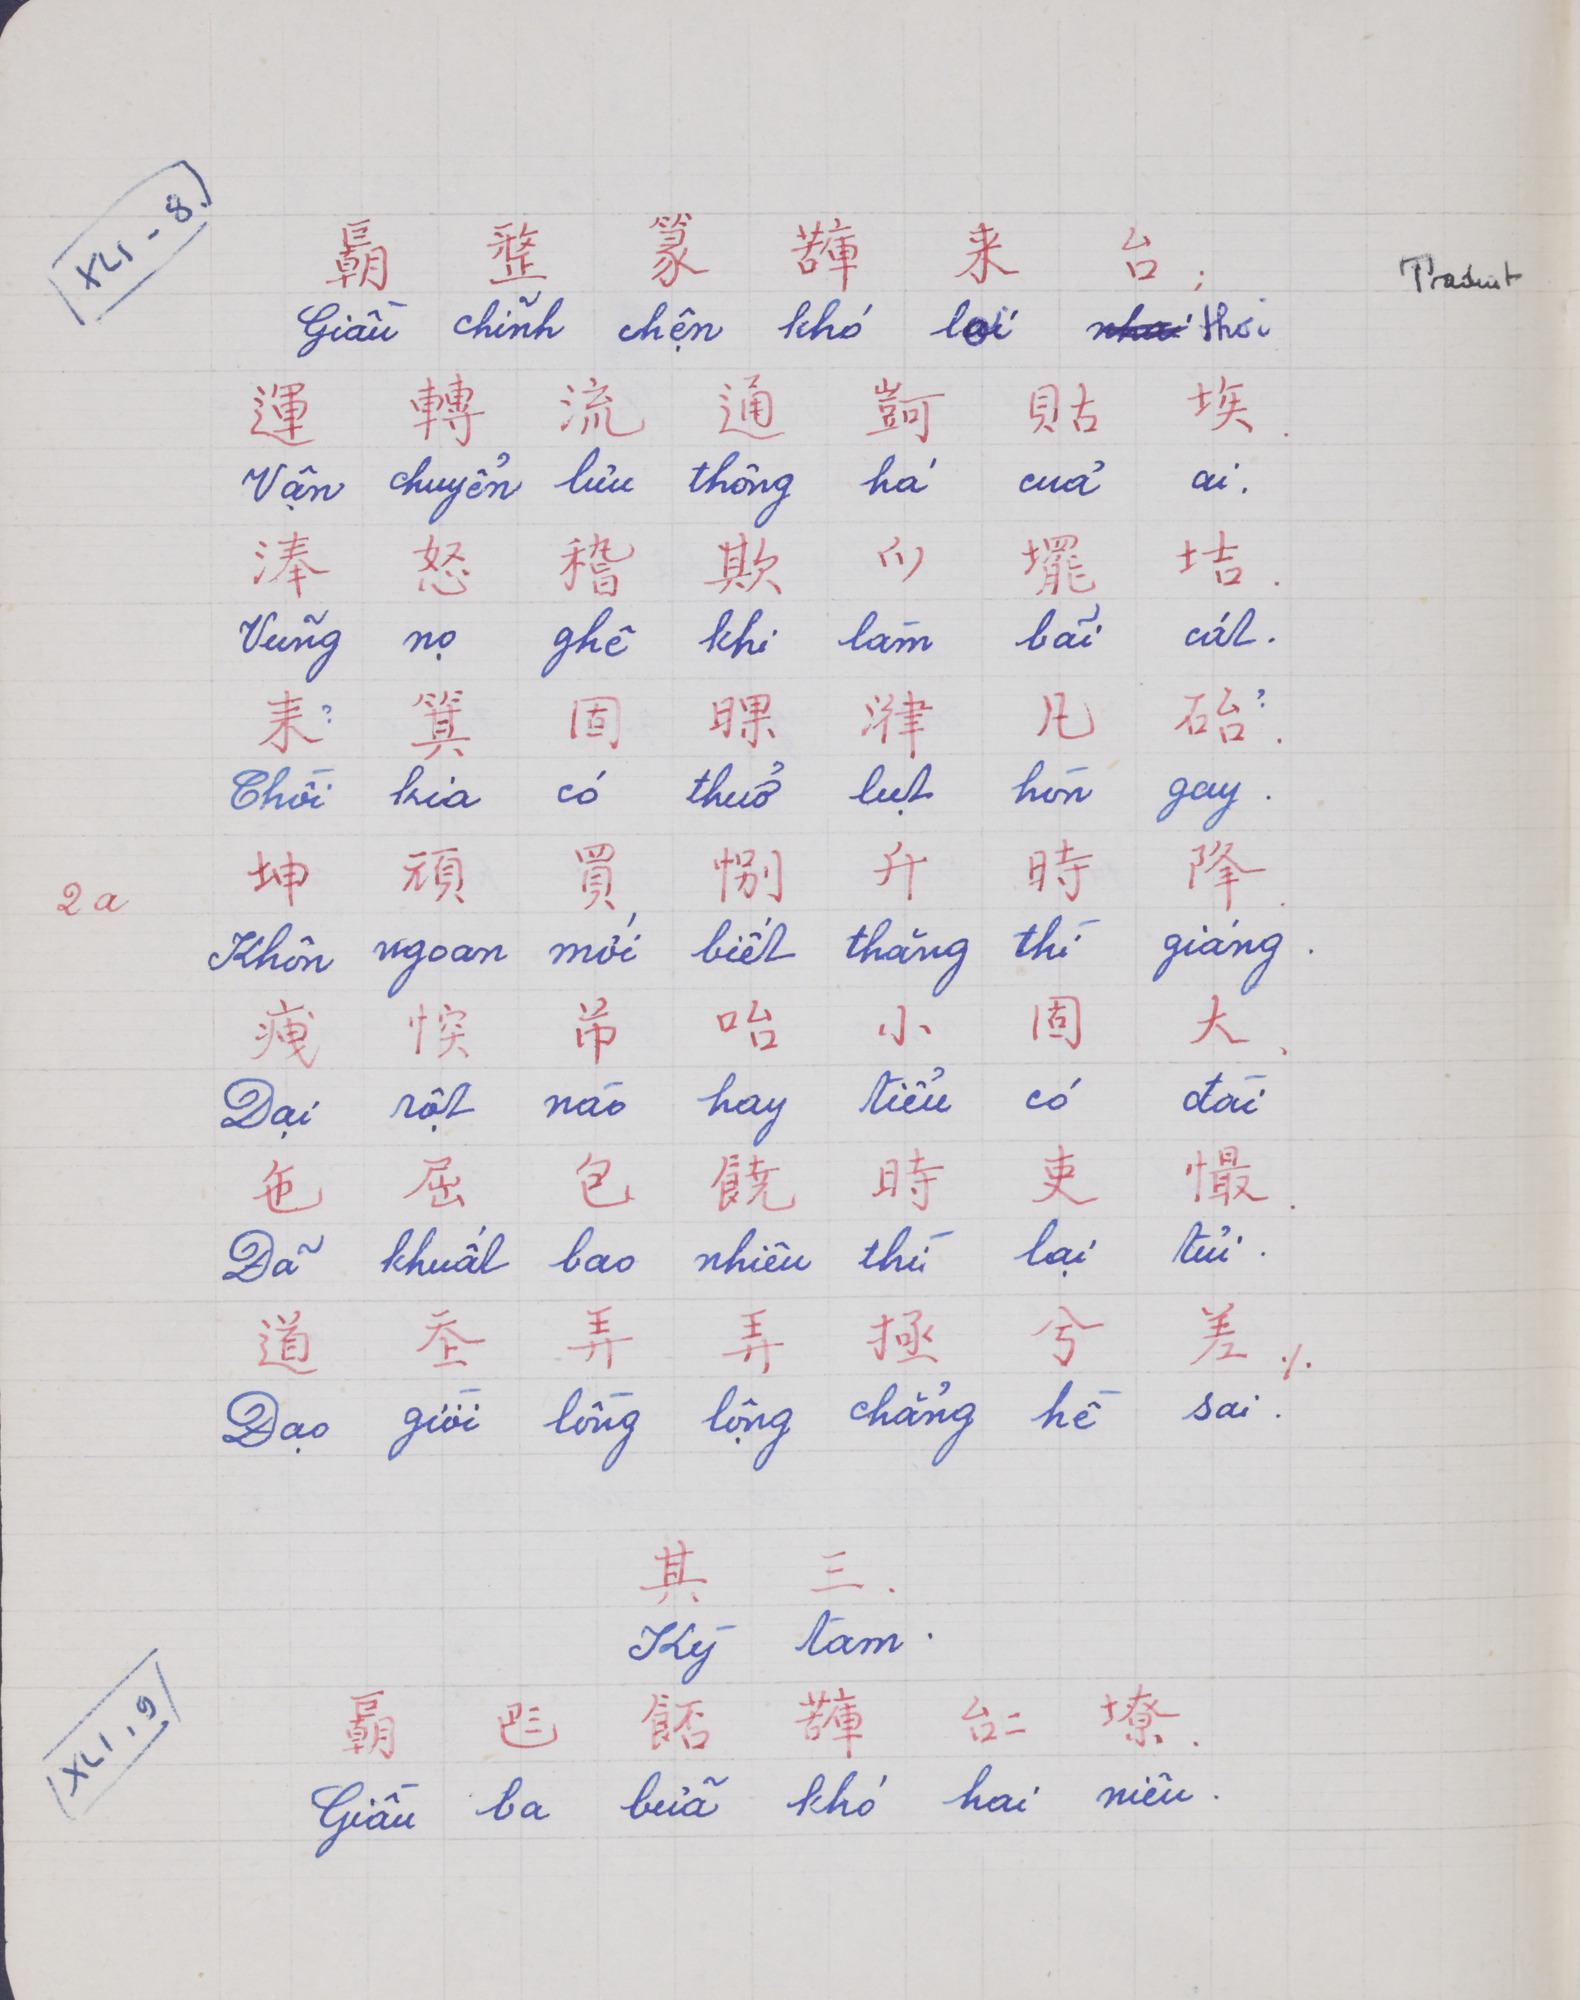 XLI - 8
整 篆 来 台 ;
Traduit
Giầu chĩnh chện khó lơi nhai thôi
運 轉 流 通 貼 埃 .
Vận chuyển lưu thông há cuả ai .
湊 怒 稽 欺 罷 坫 .
Vũng nọ ghê khi làm bãi cát .
箕 固 凡 .
Thôì kia có thuở lụt hòn gay .
2a
坤 頑 買 升 時 降 .
Khôn ngoan mới biết thăng thì giáng .
咍 小 固 大 、
Dại rột nào hay tiểu có đài
屈 包 饒 時 吏 .
Đã khuất bao nhiêu thì lại tủi .
道 弄 弄 拯 兮 差 ./.
Đạo giời lồng lộng chẳng hề sai .
其 三 .
Kỳ tam .
XLI . 9
Giầu ba bữa khó hai niêu .